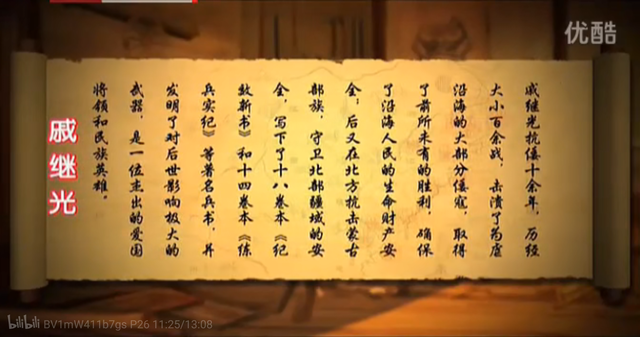 优酷
戚继光抗倭十余年，历经
大小百余战，击溃了为虐
沿海的大部分倭寇，取得
了前所未有的胜利，确保
了沿海人民的生命财产安
全；后又在北方抗击蒙古
部族，守卫北部疆域的安
全，写下了十八卷本《纪
效新书》和十四卷本《练
兵实纪》等著名兵书，并
发明了对后世影响极大的
武器，是一位杰出的爱国
将领和民族英雄。
戚继光
bilibili BV1mW411b7gs P26 11:25/13:08